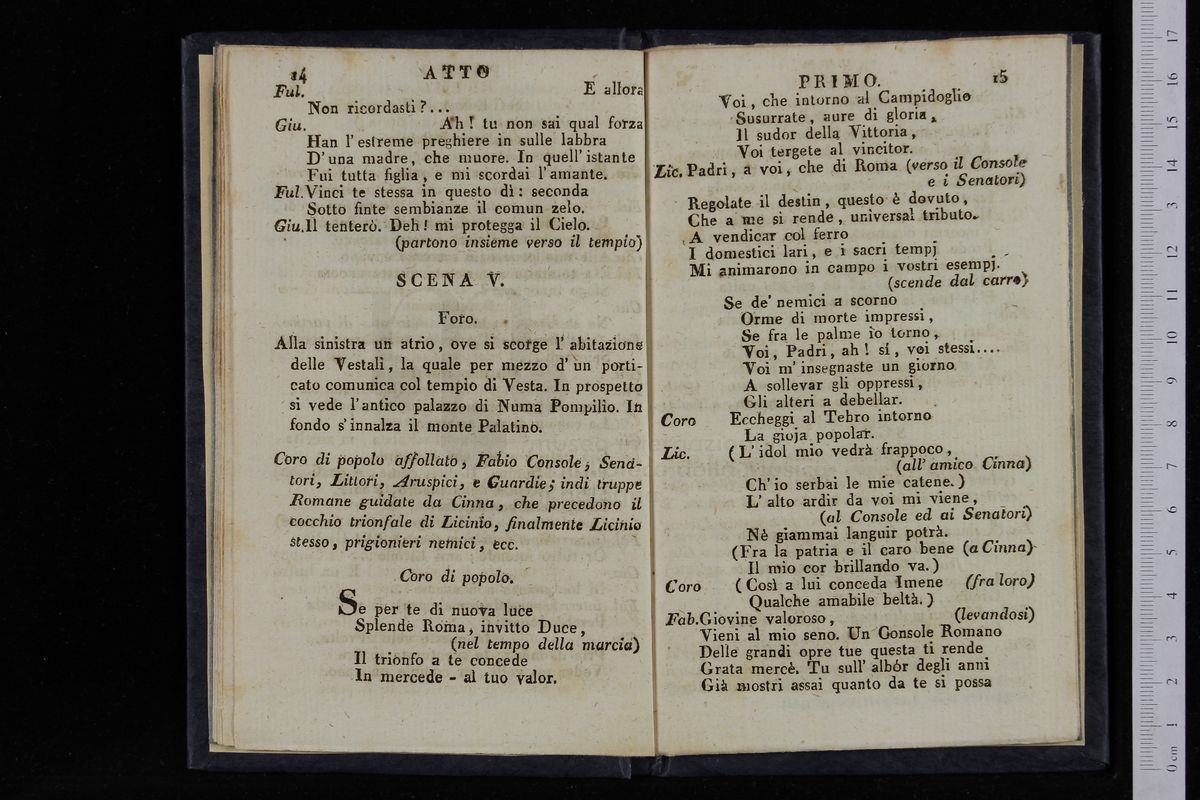 14 ATTO
Ful. E allora
Non ricordasti?...
Giu. Ah! tu non sai qual forza
Han l'estreme preghiere in sulle labbra
D'una madre, che muore. In quell'istante
Fui tutta figlia, e mi scordai l'amante.
Ful. Vinci te stessa in questo dì: seconda
Sotto finte sembianze il comun zelo.
Giu. Il tenterò. Deh! mi protegga il Cielo.
(partono insieme verso il tempio)
SCENA V.
Foro.
Alla sinistra un atrio, ove si scorge l'abitazione
delle Vestali, la quale per mezzo d'un porti-
cato comunica col tempio di Vesta. In prospetto
si vede l'antico palazzo di Numa Pompilio. In
fondo s'innalza il monte Palatino.
Coro di popolo affollato, Fabio Console, Sena-
tori, Littori, Aruspici, e Guardie; indi truppe
Romane guidate da Cinna, che precedono il
cocchio trionfale di Licinio, finalmente Licinio
stesso, prigionieri nemici, ecc.
Coro di popolo.
Se per te di nuova luce
Splende Roma, invitto Duce,
(nel tempo della marcia)
Il trionfo a te concede
In mercede - al tuo valor.
PRIMO. 15
Voi, che intorno al Campidoglio
Susurrate, aure di gloria,
Il sudor della Vittoria,
Voi tergete al vincitor.
Lic. Padri, a voi, che di Roma (verso il Console
e i Senatori)
Regolate il destin, questo è dovuto,
Che a me si rende, universal tributo.
A vendicar col ferro
I domestici lari, e i sacri tempj
Mi animarono in campo i vostri esempj.
(scende dal carro)
Se de' nemici a scorno
Orme di morte impressi,
Se fra le palme io torno,
Voi, Padri, ah! sì, voi stessi....
Voi m'insegnaste un giorno
A sollevar gli oppressi,
Gli alteri a debellar.
Coro Eccheggi al Tebro intorno
La gioja popolar.
Lic. (L'idol mio vedrà frappoco,
(all'amico Cinna)
Ch'io serbai le mie catene.)
L'alto ardir da voi mi viene,
(al Console ed ai Senatori)
Nè giammai languir potrà.
(Fra la patria e il caro bene (a Cinna)
Il mio cor brillando va.)
Coro (Così a lui conceda Imene (fra loro)
Qualche amabile beltà.)
Fab. Giovine valoroso, (levandosi)
Vieni al mio seno. Un Console Romano
Delle grandi opre tue questa ti rende
Grata mercè. Tu sull'albór degli anni
Già mostri assai quanto da te si possa
0 cm 1 2 3 4 5 6 7 8 9 10 11 12 3 14 15 16 17